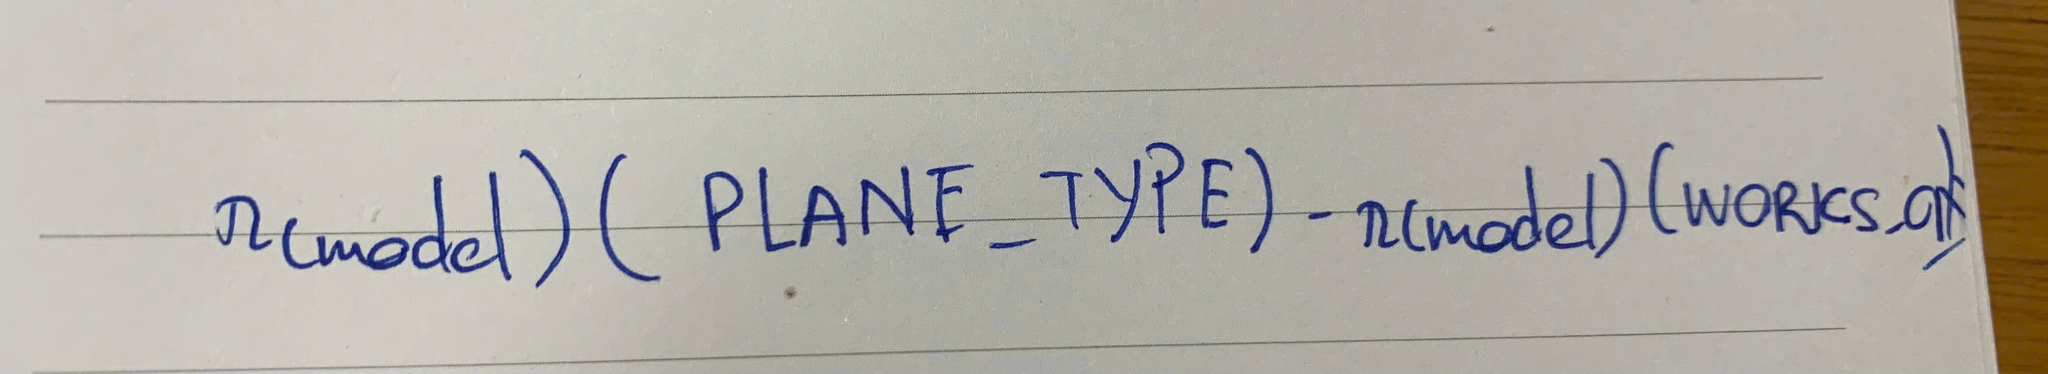 π(model)(PLANE_TYPE) - π(model)(WORKS_ON)